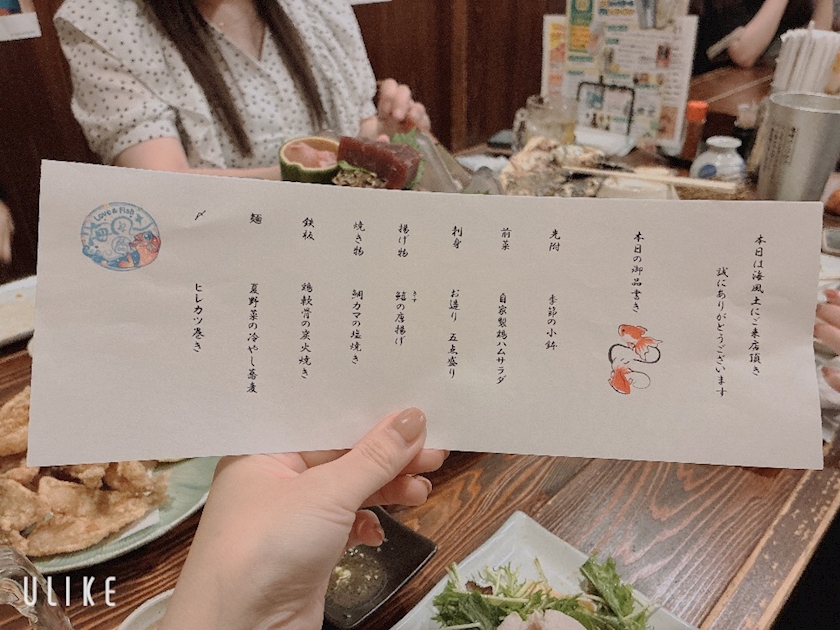 本日は海風土にご来店頂き
誠にありがとうございます
本日の御品書き
先附 季節の小鉢
前菜 自家製鶏ハムサラダ
刺身 お造り 五点盛り
揚げ物 鱚の唐揚げ
きす
焼き物 鯛カマの塩焼き
鉄板 鶏軟骨の炭火焼き
麺 夏野菜の冷やし蕎麦
〆 ヒレカツ巻き
Love & Fish
ULIKE